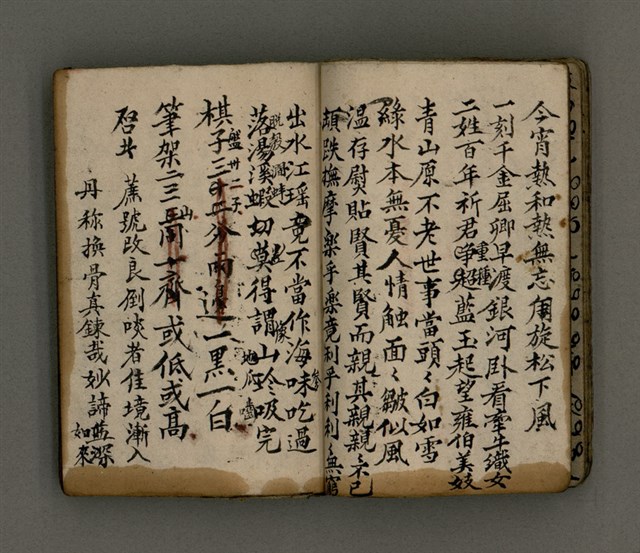 今宵熱和熱無忘用旋松下風
一刻千金屈卿早渡銀河卧看牽牛織女
二姓百年祈君種藍玉起望雍伯美妓
青山原不老世事當頭〻白如雪
綠水本無憂人情触面〻皺似風
温存熨貼賢其賢而親其親親〻不已
顛跌撫摩樂乎樂竟利乎利利〻無窮
出水江瑤竟不當作海味吃過
落湯溪蝦切莫得謂山冷吸完
棋子三十二分兩邊一黑一白
盤卅二天
筆架二三山周十齊或低或高
啓北 蔗號改良倒啖者佳境漸入
丹称換骨真鍊哉妙諦藍深
如來